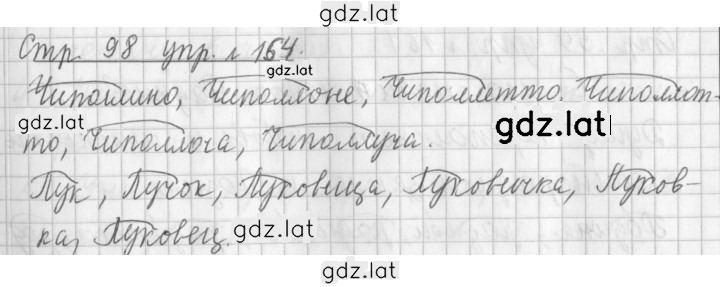 gdz.lat
Стр. 98 упр. л 164.
gdz.lat
Чиполлино, Чиполлоне, Чиполлетто. Чиполлот-
gdz.lat
gdz.lat
то, Чиполлоча, Чиполлуча.
Лук, Лучок, Луковица, Луковичка, Луков-
ка, Луковец.
gdz.lat
gdz.lat